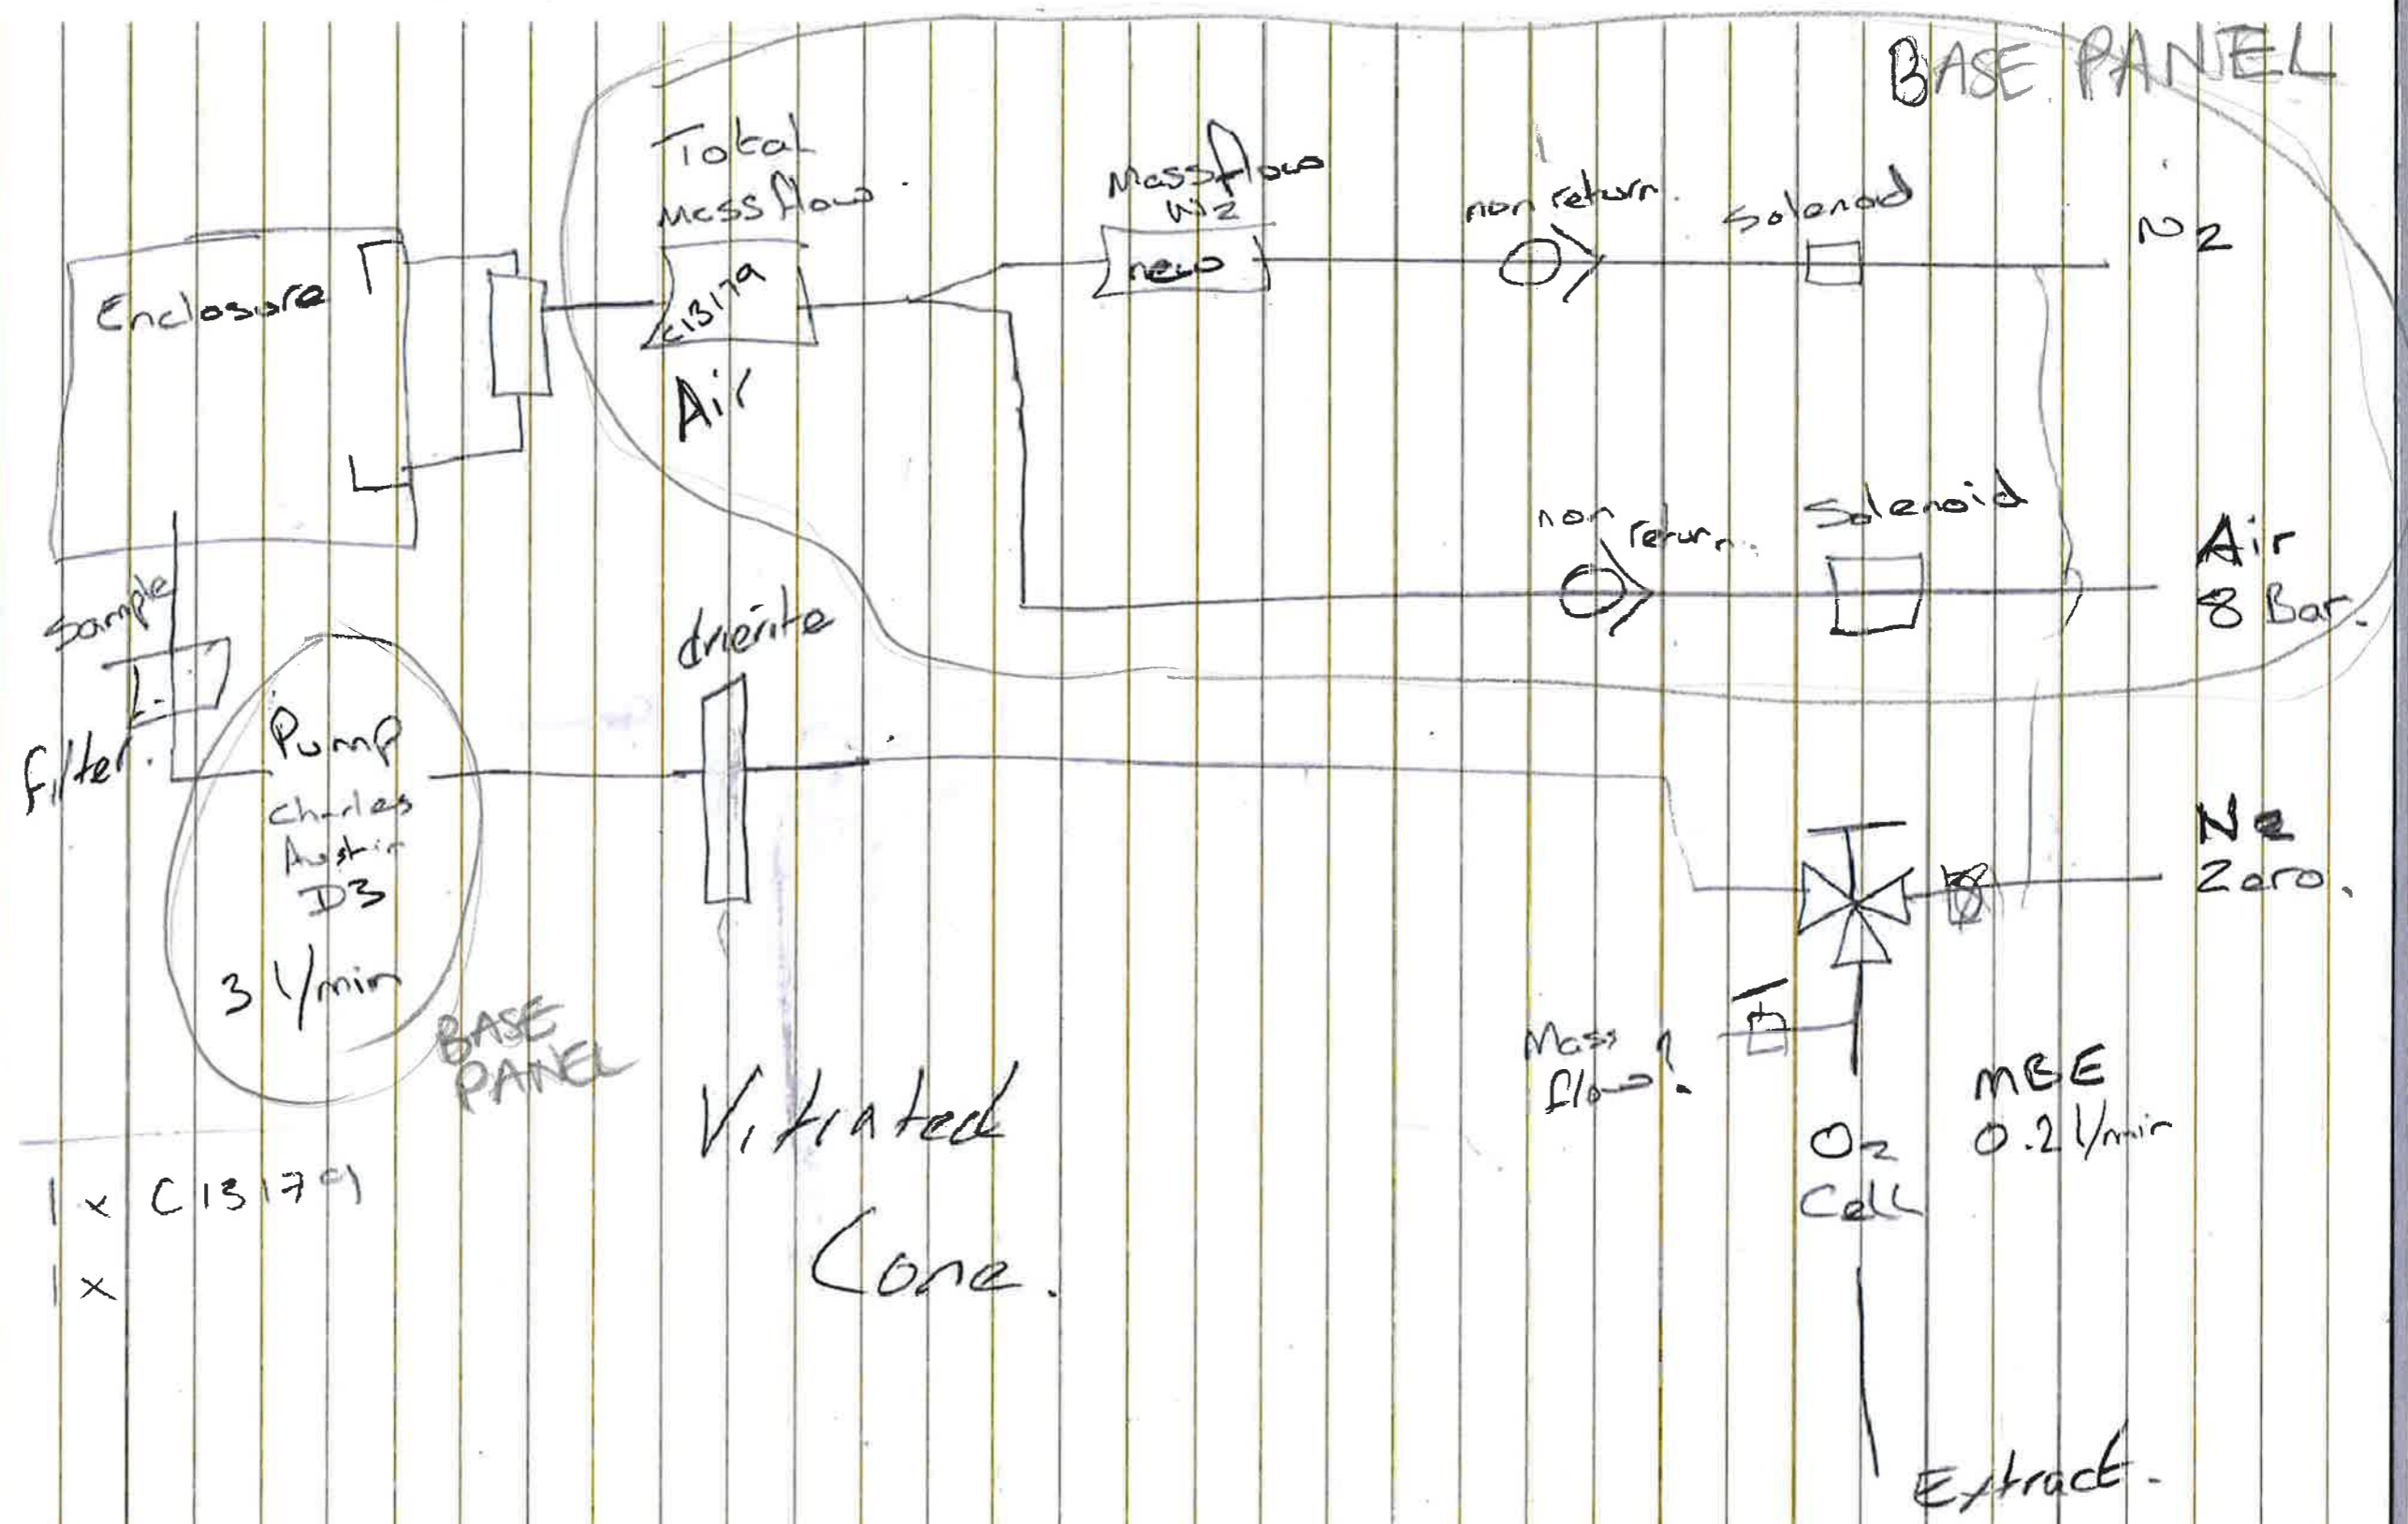 BASE PANEL
Total
Massflow.
Massflow
N2
non return.
Solenoid
N2
Enclosure
C13179
new
Air
non
return.
Solenoid
Air
8 Bar.
Sample
drierite
filter.
Pump
Charles
Austin
D3
3 l/min
BASE
PANEL
N2
Zero.
Mass
flow?
MBE
0.2 l/min
O2
Cell
Vitiated
Cone.
1 x C13179
1 x
Extract.